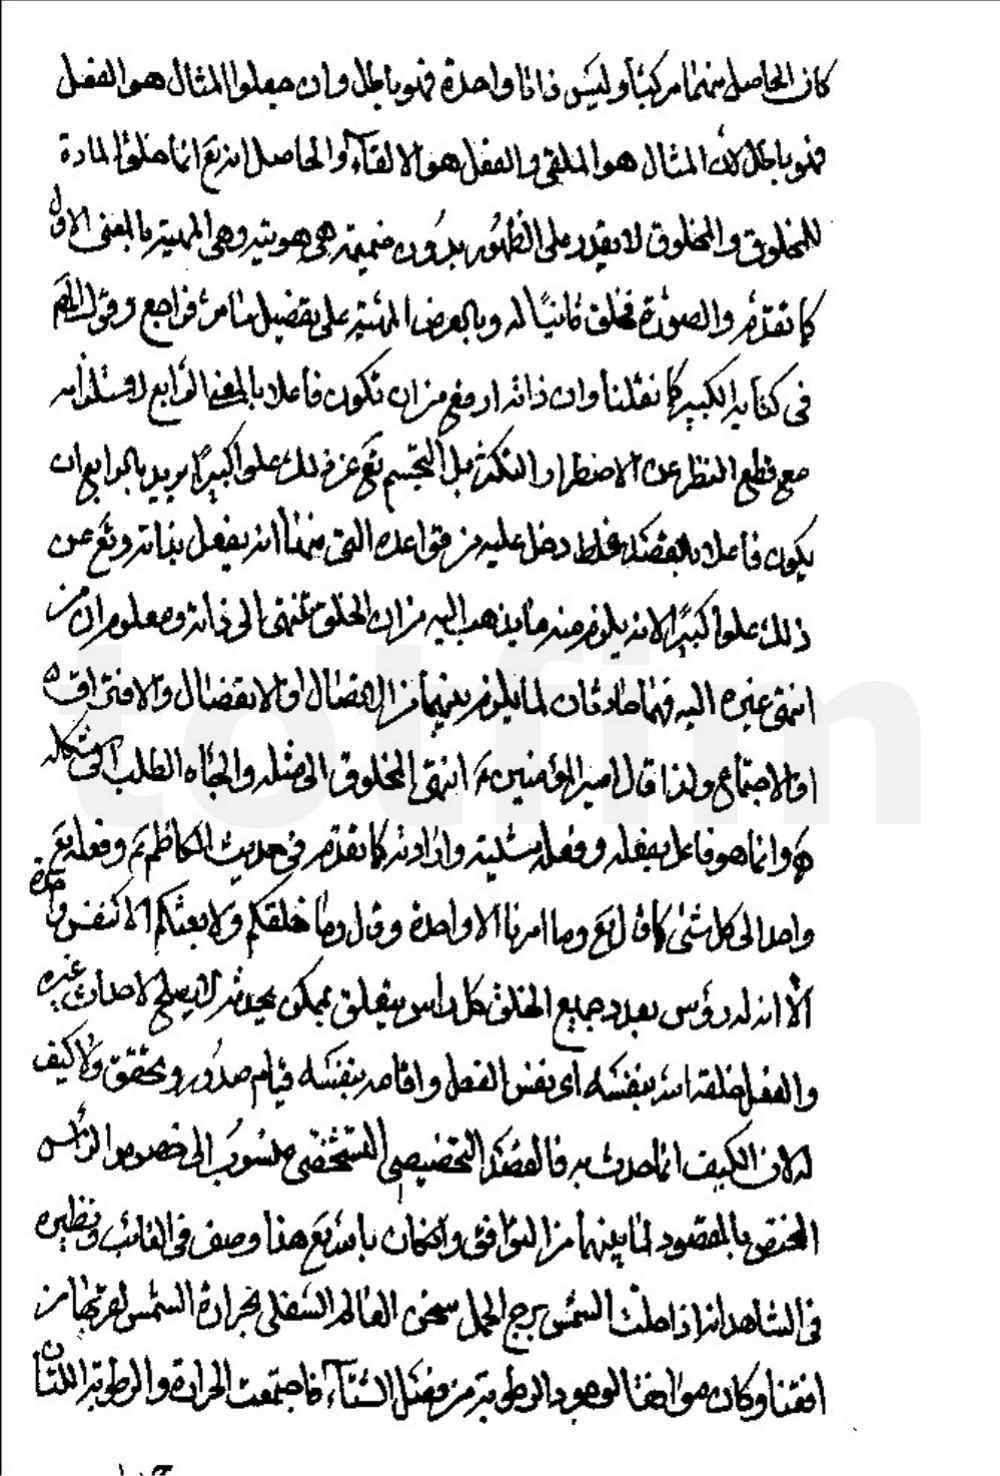 كان الحاصل منهما مركبا وليس ذاتا واحدة فهو باطل وان جعلوا المثال هو الفعل
فهو باطل لان المثال هو الملقى والفعل هو الالقاء والحاصل انه تع انما خلق المادة
للمخلوق والمخلوق لا يقدر على الظهور بدون ضميمة هي هويته وهي المهية بالمعنى الاول
كما تقدم والصورة فخلق ثانيا له وبالعرض المهية على تفصيل ما مر فراجع وقول الملا
في كتابه الكبير كما نقلنا وان ذاته ارفع من ان تكون فاعلا بالمعنى الرابع لاستلزامه
مع قطع النظر عن الاضطرار والتكثر بل التجسم تع عن ذلك علوا كبيرا يريد بالرابع ان
يكون فاعلا بالقصد غلط دخل عليه من قواعده التي منها انه يفعل بذاته وتع عن
ذلك علوا كبيرا لانه يلزم منه ما يذهب اليه من ان الخلق تنتهى الى ذاته ومعلوم ان من
انتهى غيره اليه فهما حادثان لما يلزم بينهما من الاتصال او الانفصال والافتراق
او الاجتماع ولذا قال امير المؤمنين ع انتهى المخلوق الى مثله والجاه الطلب الى شكله
وانما هو فاعل بفعله وفعله مشيته وارادته كما تقدم في حديث الكاظم ع وفعله تع
واحد الى كل شئ كما قال تع وما امرنا الا واحدة وقال وما خلقكم ولا بعثكم الا كنفس واحدة
الا انه له رؤس بعدد جميع الخلق كل راس يتعلق بممكن يحدثه لا يصلح لاحداث غيره
والفعل خلقه الله بنفسه اى نفس الفعل واقامه بنفسه قيام صدور وتحقق ولا كيف
له لان الكيف انما حدث به فالقصد التخصيصي التشخصى منسوب الى خصوص الراس
المختص بالمقصود لما بينهما من التوافق والضمان بالله تع هذا وصف في الغائب ونظيره
في الشاهد انه اذا حلت الشمس برج الحمل سخن العالم السفلى بحرارة الشمس لقربها من
افقنا وكان موافقا لوجود الرطوبة من فصل الشتاء فاجتمعت الحرارة والرطوبة اللتان